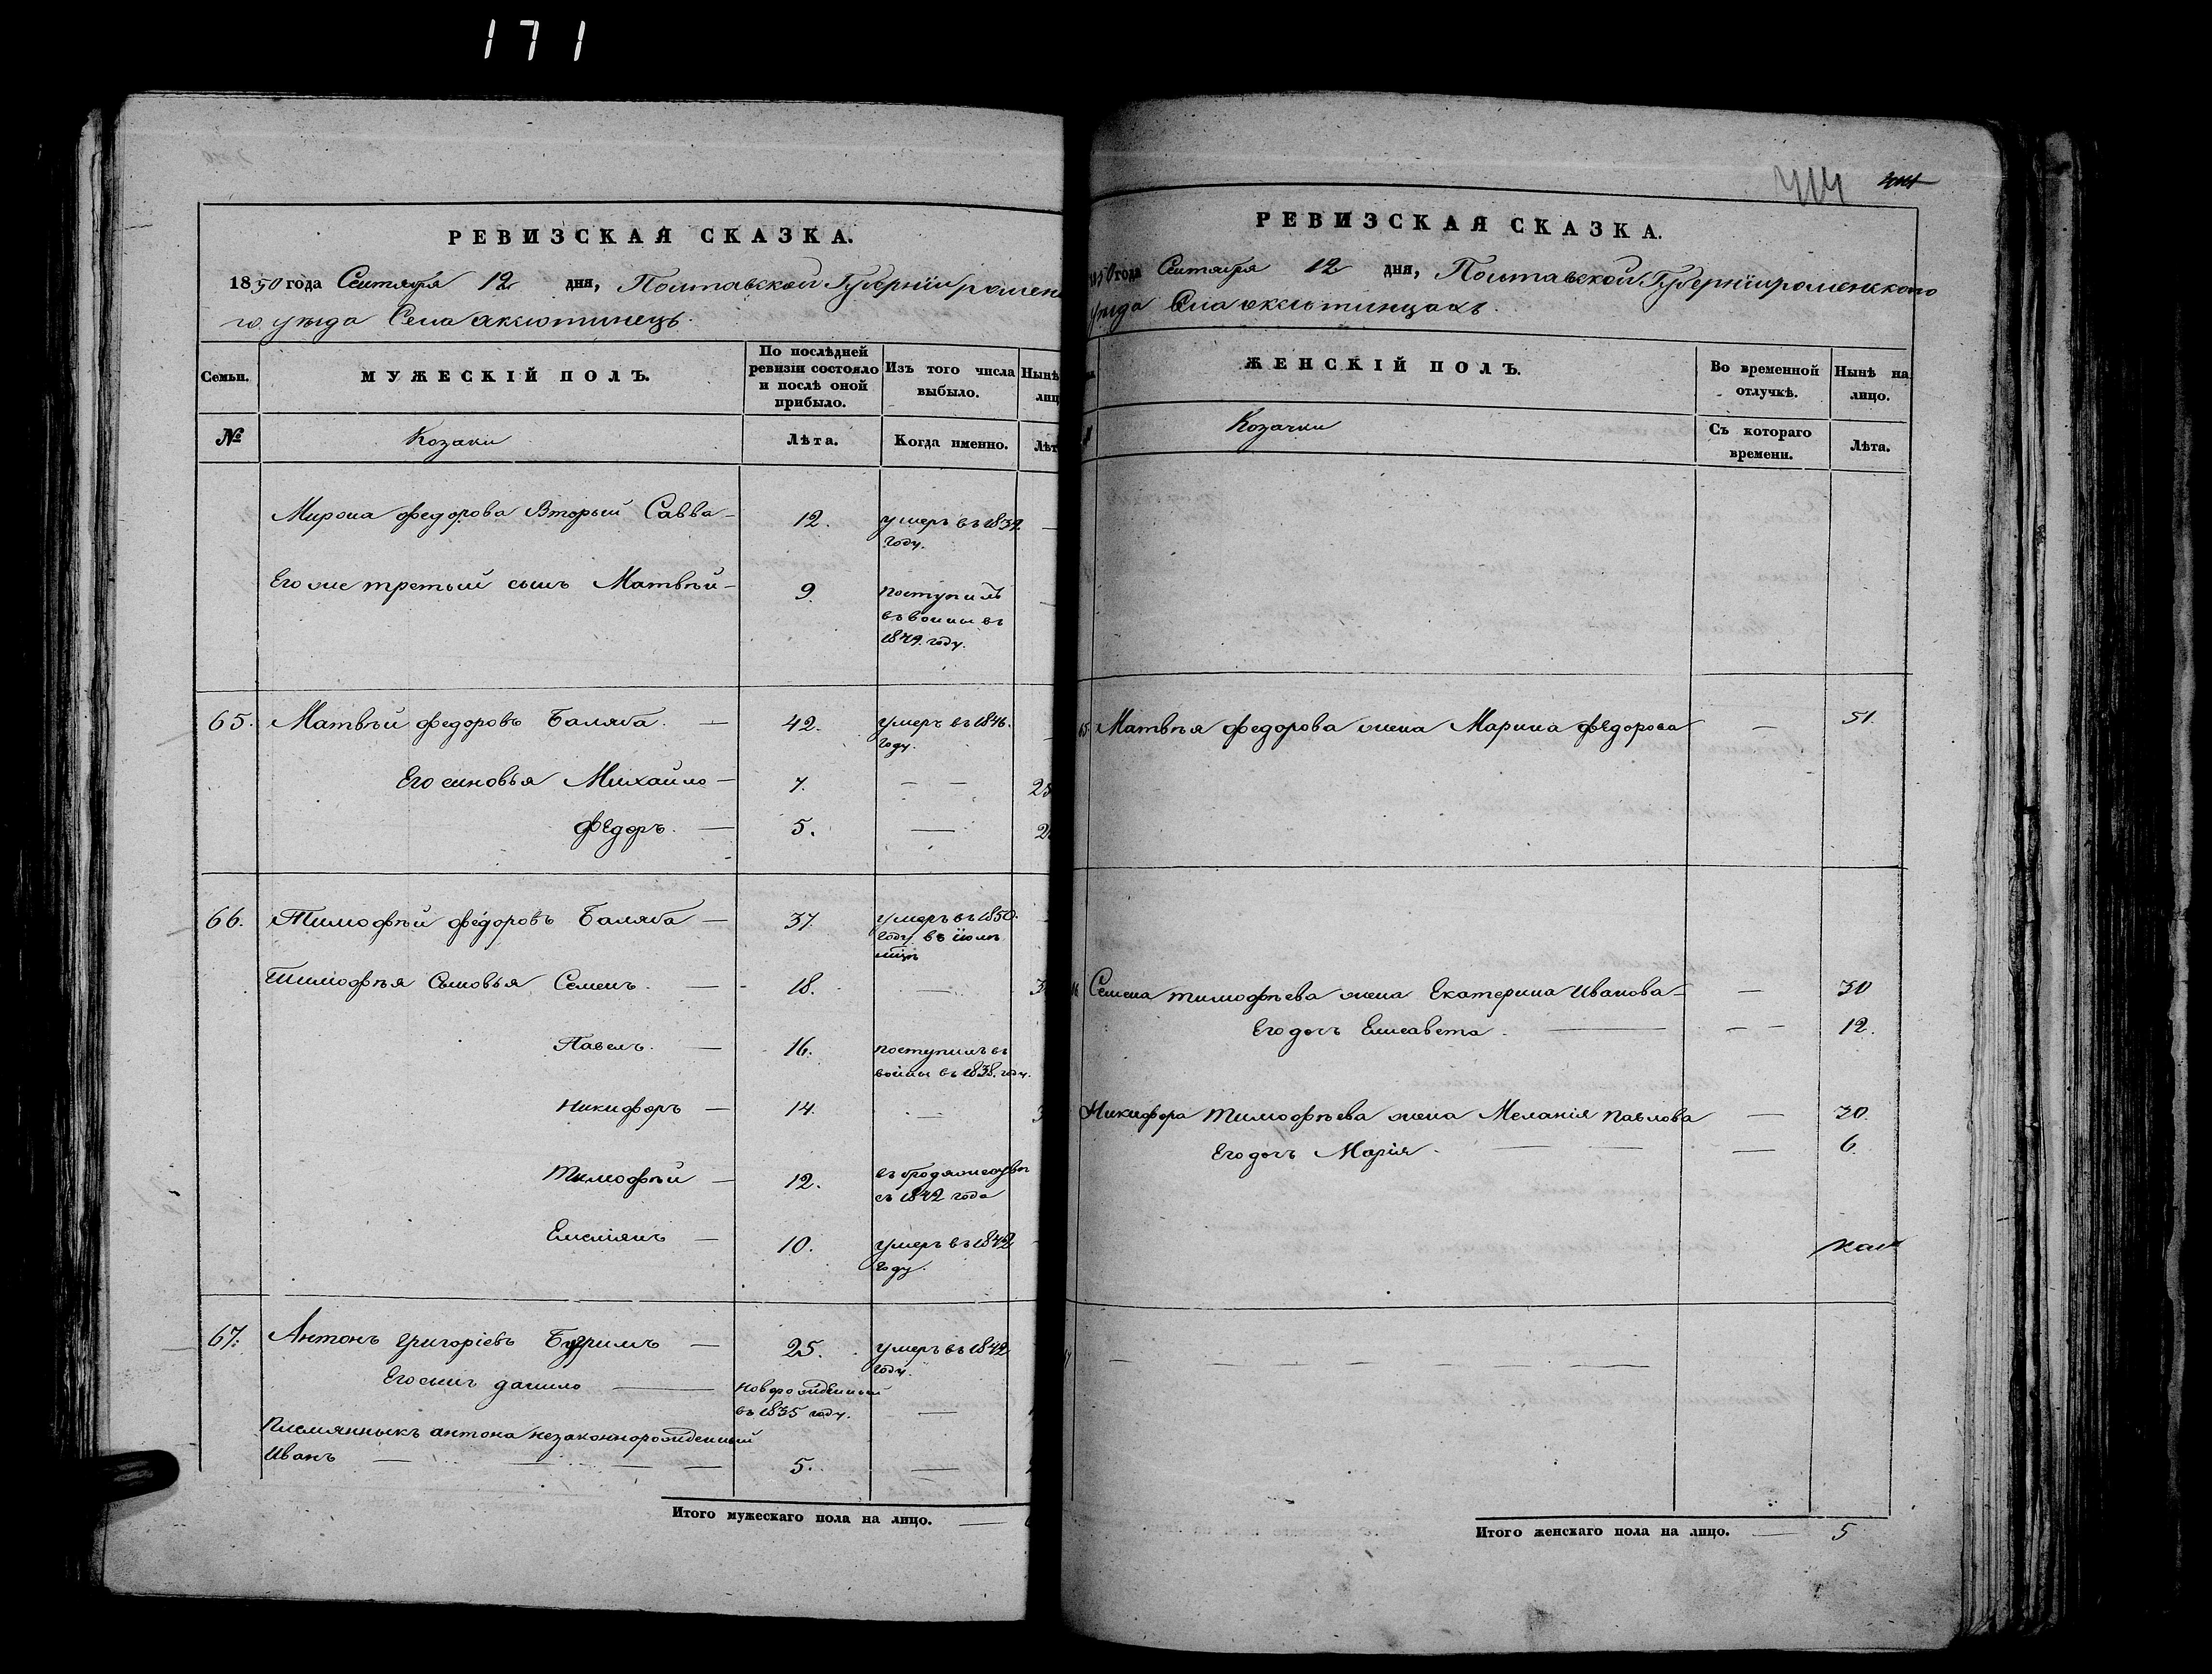 171
РЕВИЗСКАЯ СКАЗКА.
1850 года Сентября 12 дня, Полтавской Губерніи ромен
го уѣзда Села аксютинець.
Семьи.
МУЖЕСКІЙ ПОЛЪ.
По послѣдней ревизіи состояло и послѣ оной прибыло.
Изъ того числа выбыло.
Нынѣ
лиц
№
Козаки
Лѣта.
Когда именно.
Лѣт
Мирона федорова Вторый Савва — 12. умеръ въ 1832 году. —
Его же третьий сынъ Матвѣй — 9. поступилъ въ воины въ 1849. году. —
65. Матвѣй федоровъ Баляба. — 42. умеръ въ 1846. году. —
Его синовья Михайло — 7. — — 25
федоръ. — 5. — 2
66. Тимофѣй федоровъ Баляба — 37. умеръ въ 1850. году въ іюлѣ мцѣ —
Тимофѣя Сыновья Семенъ. — 18. — 3
Павелъ. — 16. поступилъ въ воины въ 1838. году.
Никифоръ — 14. — 3
Тимофѣй — 12. въ бродяжествѣ съ 1842 года
Емеліянъ — 10. умеръ въ 1842 году.
67. Антонъ григоріевъ Бугримъ — 25. умеръ въ 1842 году.
Его сынъ данило — новорожденный въ 1835 году. —
Племянныкъ антона незаконнорожденный
Иванъ — — — — 5. —
Итого мужескаго пола на лицо. —
РЕВИЗСКАЯ СКАЗКА.
1850 года Сентября 12 дня, Полтавской Губерніи роменского
уѣзда Села аксютинцахъ.
ЖЕНСКІЙ ПОЛЪ.
Во временной отлучкѣ.
Нынѣ на лицо.
Козачки
Съ котораго времени.
Лѣта.
65. Матвѣя федорова жена Марина федорова — 51.
Семена тимофѣева жена Екатерина Иванова — — 30
Его дочь Елисавета. — — — 12.
Никифора тимофѣева жена Меланія павлова — 30.
Его дочь Марія. — — — 6.
— — — — — — —
Итого женскаго пола на лицо. — 5